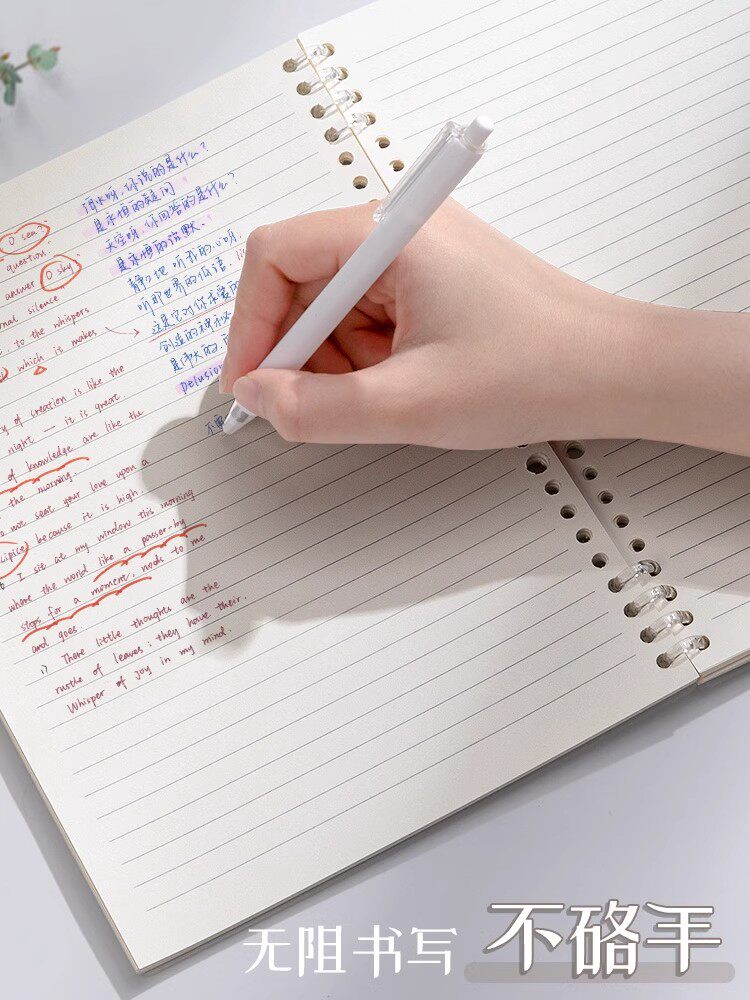 O sea?
question.
answer O sky
nal silence
to the whispers
which it makes
y of creation is like the
night — it is great
of knowledge are like the
the morning.
not seat your love upon a
cipice because it is high.
I sit at my window this morning
where the world like a passer-by
stops for a moment, nods to me
and goes
There little thoughts are the
rustle of leaves; they have their.
Whisper of joy in my mind.
海水呀,你说的是什么?
是永恒的疑问
天空呀,你回答的是什么?
是永恒的沉默.
静静地听,我的心呀,
听那世界的低语
这是它对你求爱的
创造的神秘
是伟大的
Delusion
不
无阻书写 不硌手